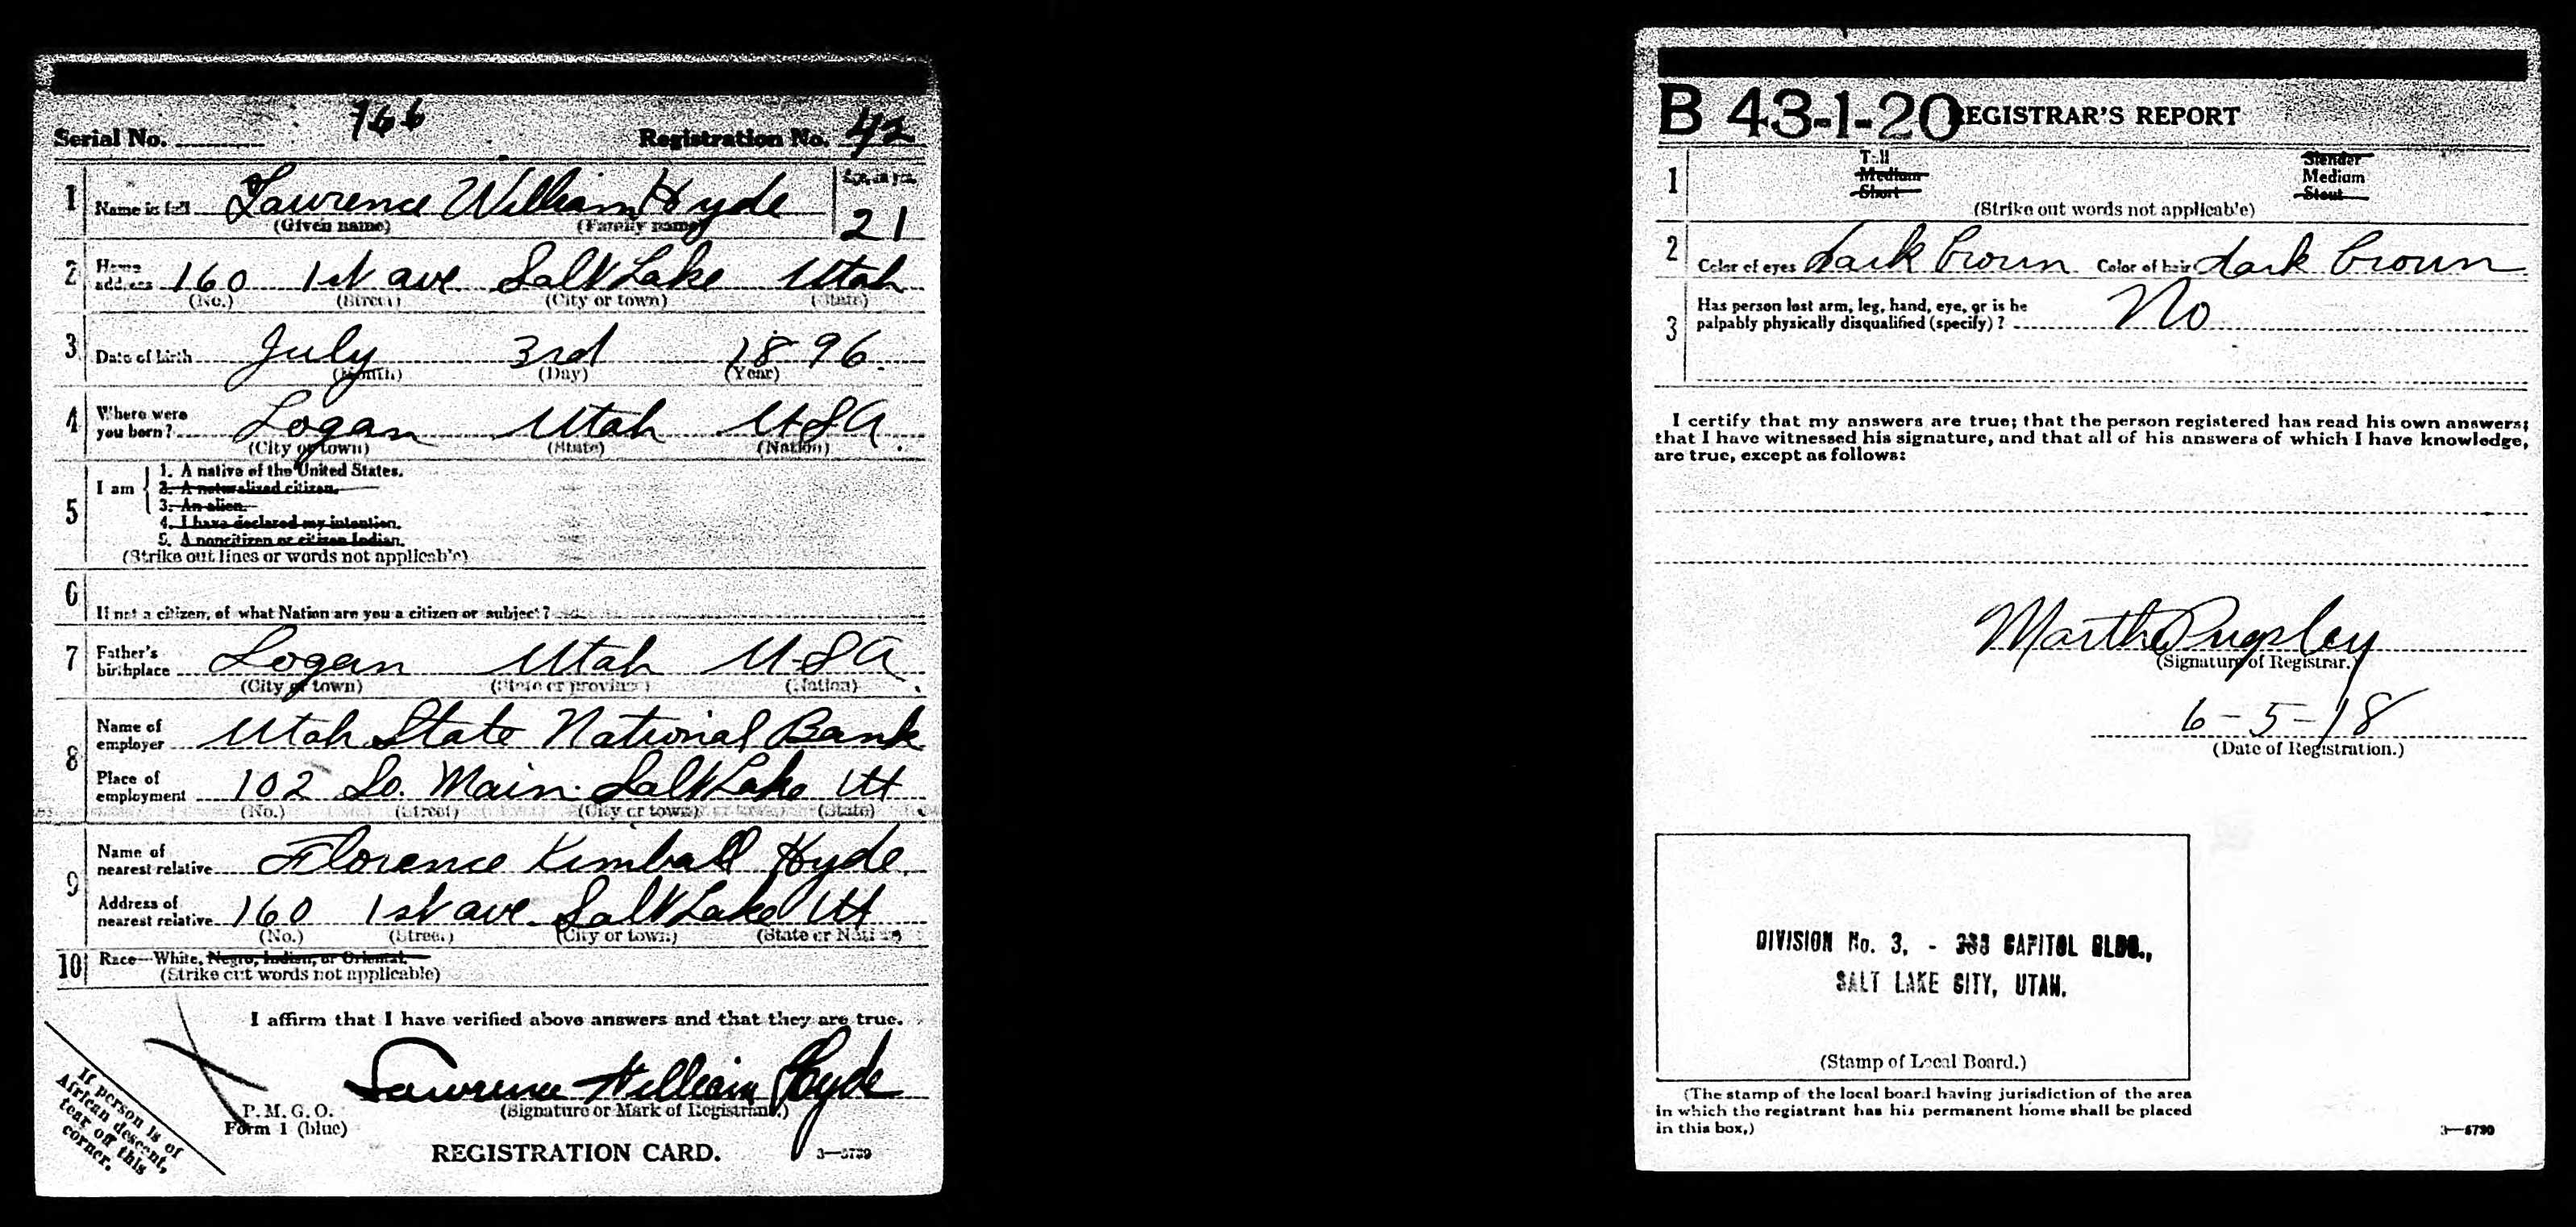 Serial No. 766 Registration No. 42
1 Name in full Lawrence William Hyde Age, in yrs. 21
(Given name) (Family name)
2 Home address 160 1st ave Salt Lake Utah
(No.) (Street) (City or town) (State)
3 Date of birth July 3rd 1896
(Month) (Day) (Year)
4 Where were you born? Logan Utah USA
(City or town) (State) (Nation)
5 I am
1. A native of the United States.
2. A naturalized citizen.
3. An alien.
4. I have declared my intention.
5. A noncitizen or citizen Indian.
(Strike out lines or words not applicable)
6 If not a citizen, of what Nation are you a citizen or subject?
7 Father's birthplace Logan Utah USA
(City or town) (State or province) (Nation)
8 Name of employer Utah State National Bank
Place of employment 102 So. Main. Salt Lake Ut
(No.) (Street) (City or town) (State)
9 Name of nearest relative Florence Kimball Hyde
Address of nearest relative 160 1st ave. Salt Lake Ut
(No.) (Street) (City or town) (State or Nation)
10 Race—White, Negro, Indian, or Oriental.
(Strike out words not applicable)
I affirm that I have verified above answers and that they are true.
Lawrence William Hyde
(Signature or Mark of Registrant.)
P. M. G. O.
Form 1 (blue)
REGISTRATION CARD.
3—5739
If person is of
African descent,
tear off this
corner.
B 43-1-20 REGISTRAR'S REPORT
1 Tall Slender
Medium Medium
Short Stout
(Strike out words not applicable)
2 Color of eyes dark brown Color of hair dark brown
3 Has person lost arm, leg, hand, eye, or is he
palpably physically disqualified (specify)? No
I certify that my answers are true; that the person registered has read his own answers;
that I have witnessed his signature, and that all of his answers of which I have knowledge,
are true, except as follows:
Martha Pugsley
(Signature of Registrar.)
6-5-18
(Date of Registration.)
DIVISION No. 3, - CAPITOL BLDG.,
SALT LAKE CITY, UTAH.
(Stamp of Local Board.)
(The stamp of the local board having jurisdiction of the area
in which the registrant has his permanent home shall be placed
in this box.)
3—5739